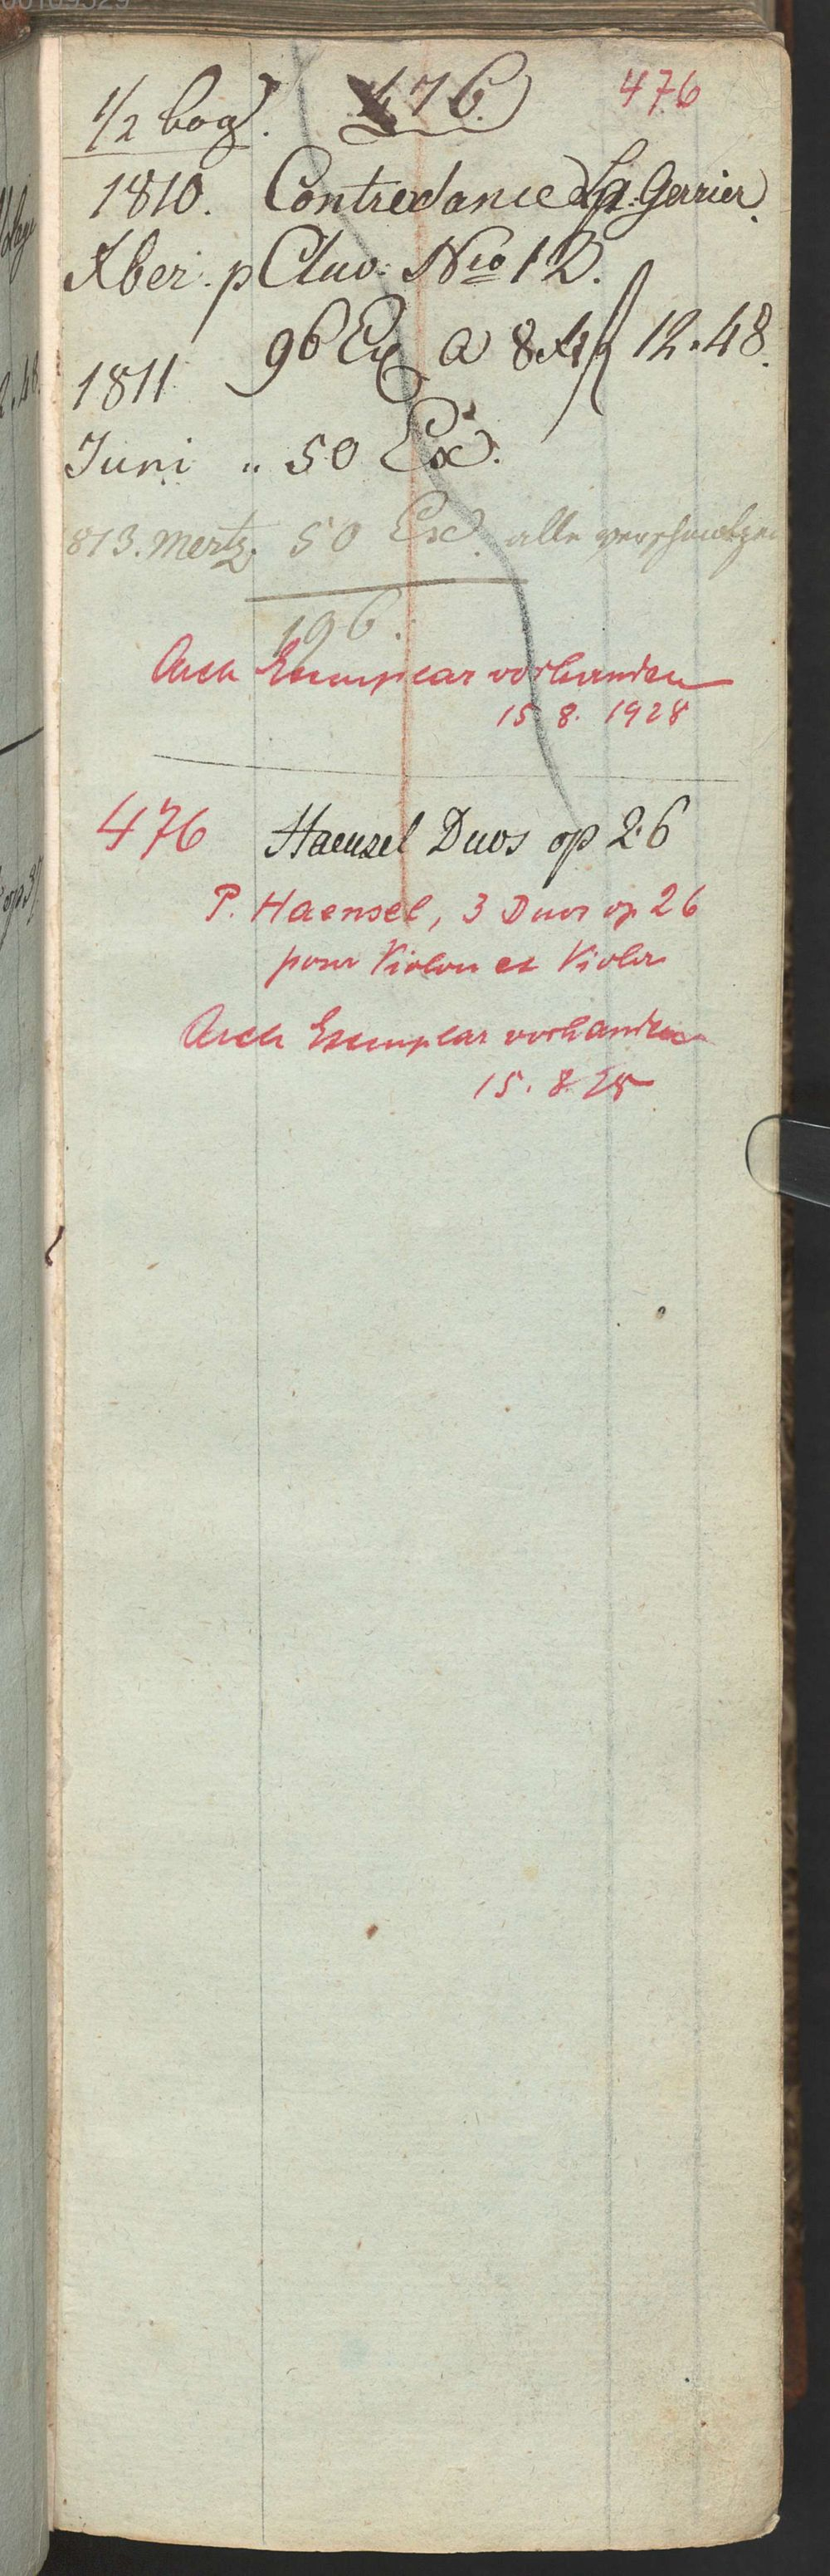 1/2 bog. 476. 476
1810. Contredance La Gerrier.
Xber. p Clav: Nro 12.
96 Ex a 8 Xr 12.48.
1811
Juni „ 50 Ex.
813. Mertz. 50 Ex. alle verschmolzen
196.
Arch Exemplar vorhanden
15 8. 1928
476 Haensel Duos op 26
P. Haensel, 3 Duos op 26
pour Violon et Viola
Arch Exemplar vorhanden
15. 8. 28